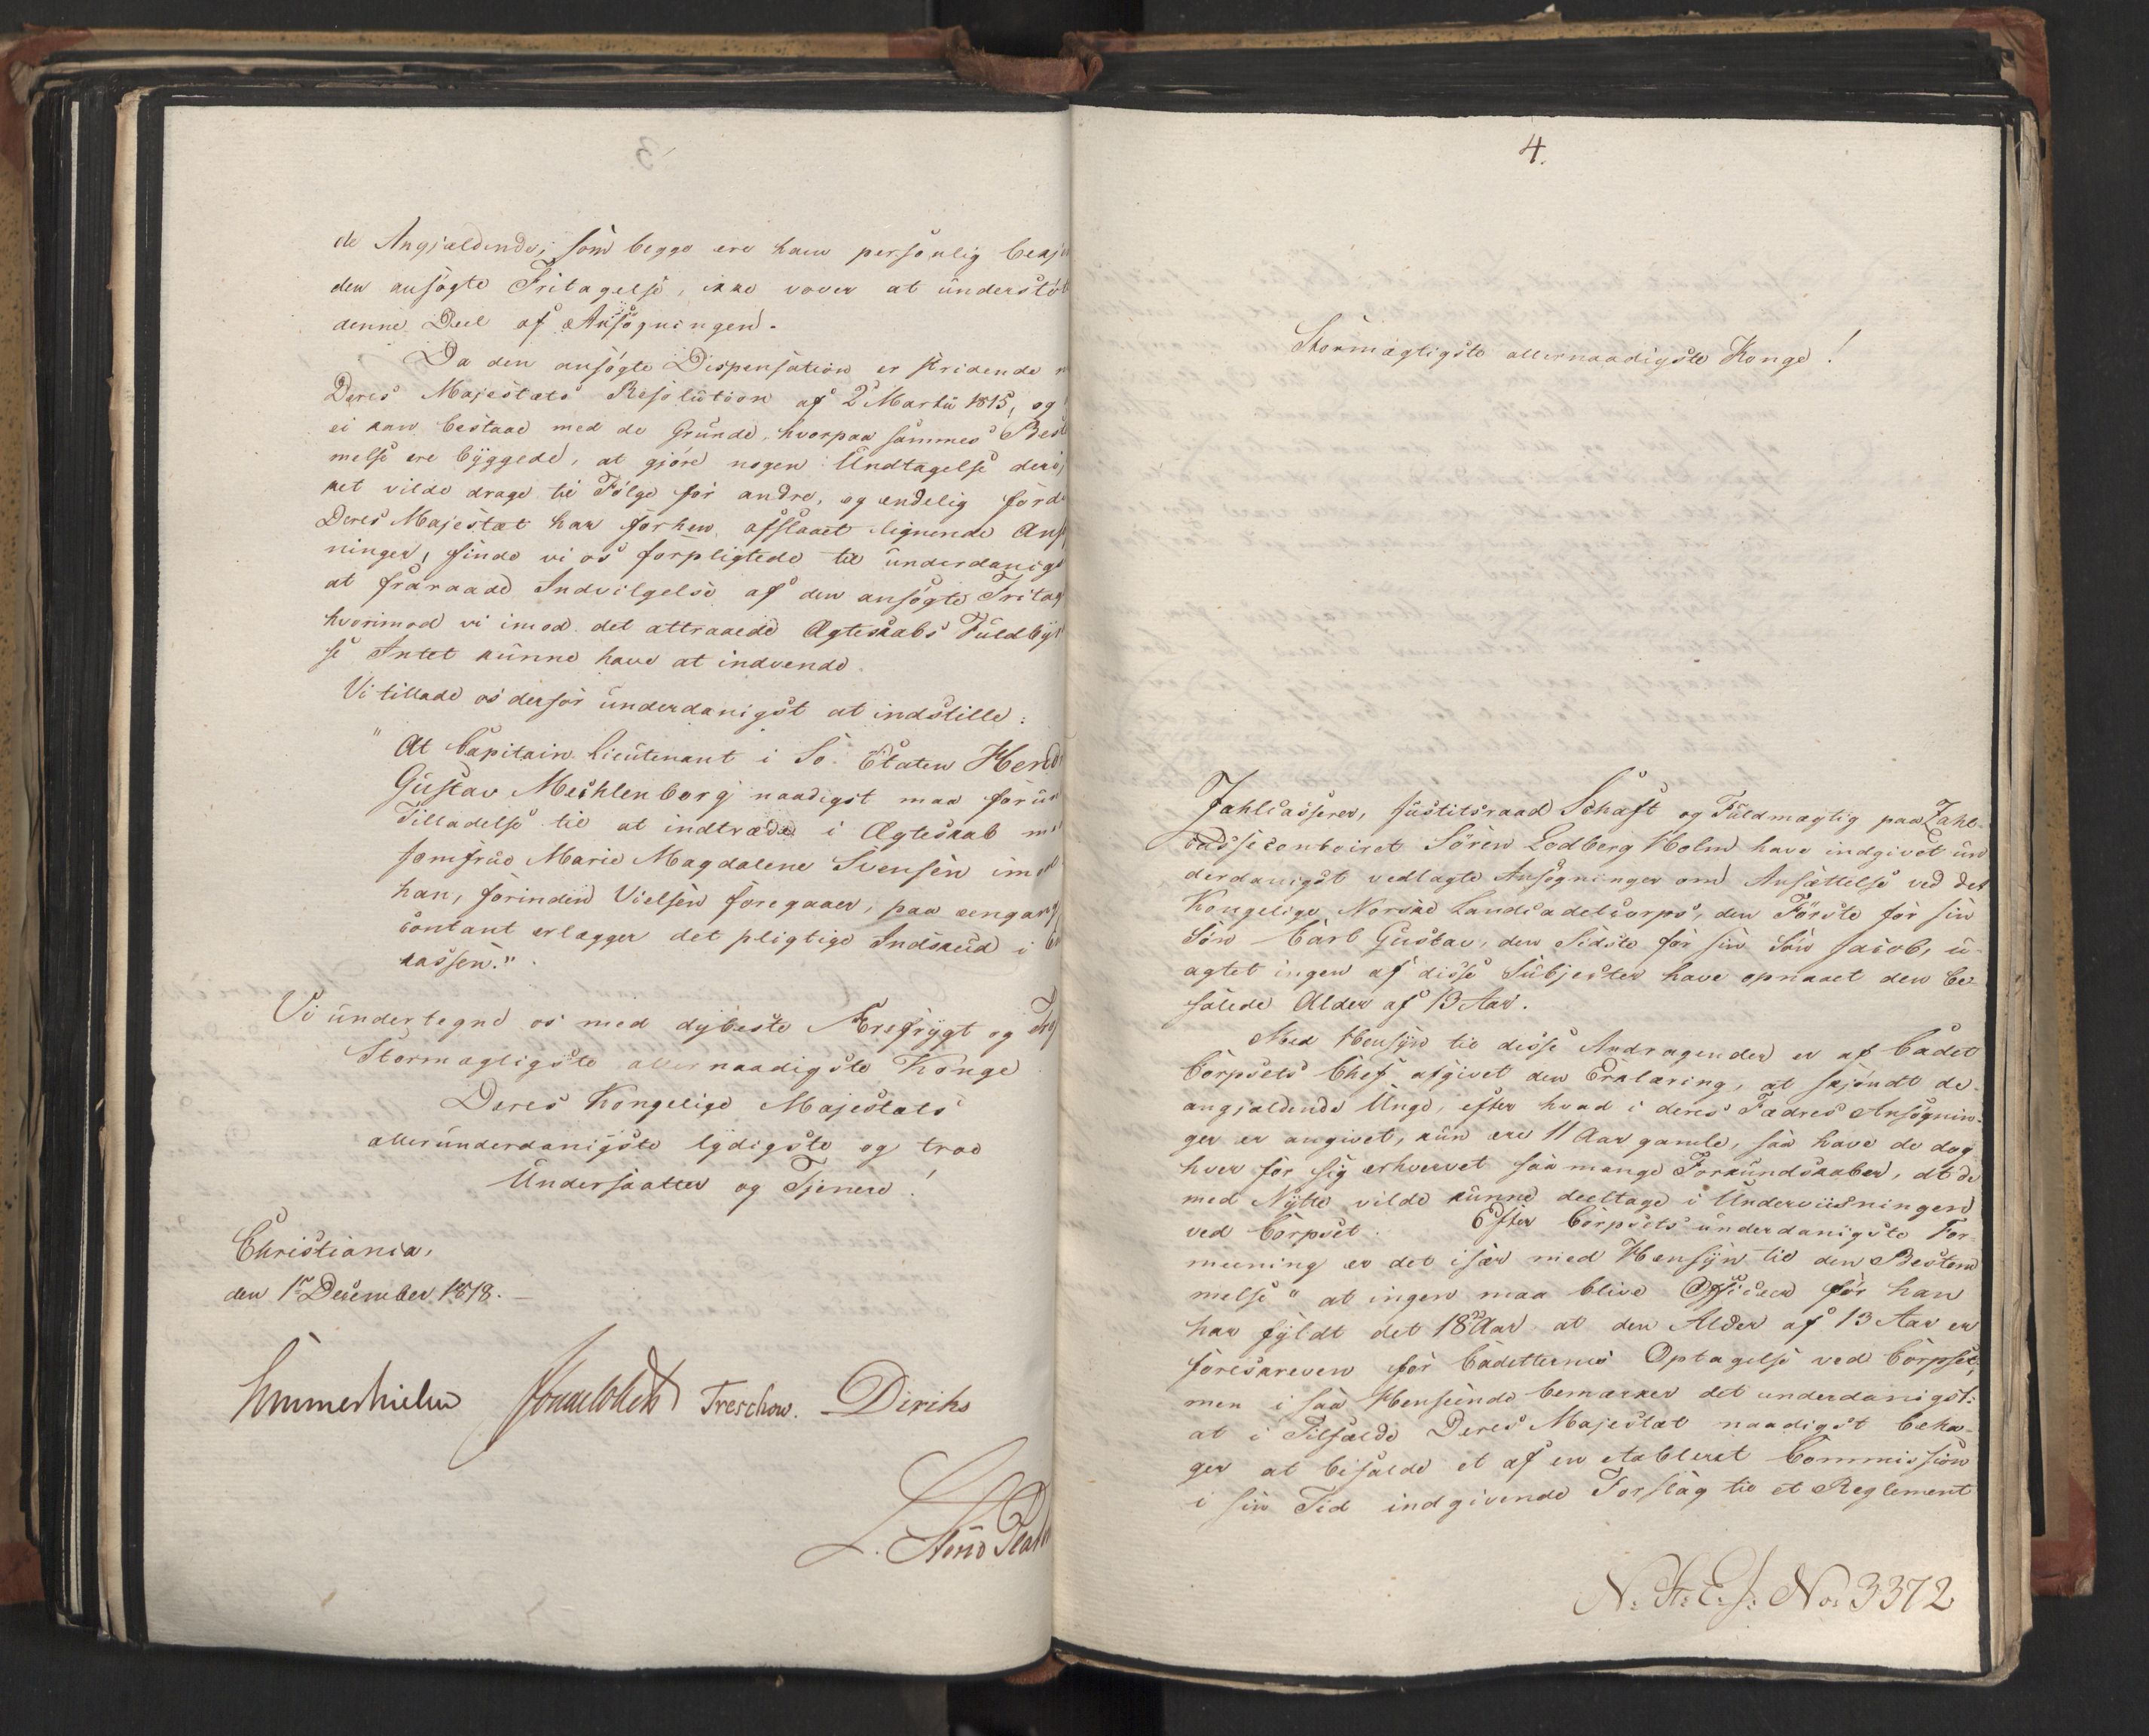 de Angjældende, som begge ere ham personlig bekj
den ansøgte Fritagelse, ikke vover at understøt
denne Deel af Ansøgningen.
Da den ansøgte Dispensation er stridende m
Deres Majestæts Resolution af 2 Martii 1815, og
ei kan bestaae med de Grunde, hvorpaa sammes Best
melse ere byggede, at gjøre nogen Undtagelse deri,
ket vilde drage til Følge for andre, og endelig ford
Deres Majestæt har forhen afslaaet lignende Ansø
ninger, finde vi os forpligtede til underdanigst
at fraraade Indvilgelse af den ansøgte Fritag
hvorimod vi imod det attraaede Ægteskabs Fuldbyr
se Intet kunne have at indvende.
Vi tillade os derfor underdanigst at indstille:
"At Capitain Lieutenant i Sø-Etaten Hend
Gustav Mechlenborg naadigst maa forun
Tilladelse til at indtræde i Ægteskab m
Jomfrue Marie Magdalene Svensen imod
han, forinden Vielsen foregaaer, paa eengang
contant erlægger det pligtige Indskud i
kassen."
Vi undertegne os med dybeste Ærefrygt og
Stormægtigste allernaadigste Konge
Deres Kongelige Majestæts
allerunderdanigste lydigste og troe
Undersaatter og Tjenere!
Christiania,
den 1ste December 1818.
Hmmerhielm Sommerhielm Treschow. Diriks
L. Stoud Plat
4.
Stormægtigste allernaadigste Konge!
Zahlcasserer, Justitsraad Schaft og Fuldmægtig paa Zahl-
cassecontoiret Sören Lodberg Holm have indgivet un
derdanigst vedlagte Ansøgninger om Ansættelse ved det
Kongelige Norske Landcadetcorps, den Første for sin
Søn Carl Gustav, den Sidste for sin Søn Jacob, u-
agtet ingen af disse Subjecter have opnaaet den be-
falede Alder af 13 Aar.
Med Hensyn til disse Andragender er af Cadet
Corpsets Chef afgivet den Erklæring, at skjøndt de
angjældende Unge, efter hvad i deres Fædres Ansøgnin-
ger er angivet, kun ere 11 Aar gamle, saa have de dog
hver for sig erhvervet saa mange Forkundskaber, at de
med Nytte vilde kunne deeltage i Underviisningen
ved Corpset. Efter Corpsets underdanigste For-
meening er det især med Hensyn til den Bestem
melse "at ingen maa blive Officeer før han
har fyldt det 18de Aar at den Alder af 13 Aar er
foreskreven for Cadetternes Optagelse ved Corpset,
men i saa Henseende bemærker det underdanigst:
at i Tilfælde Deres Majestæt naadigst beha-
ger at bifalde et af en etableret Commission
i sin Tid indgivende Forslag til et Reglement
N. St. E. J. No. 3372